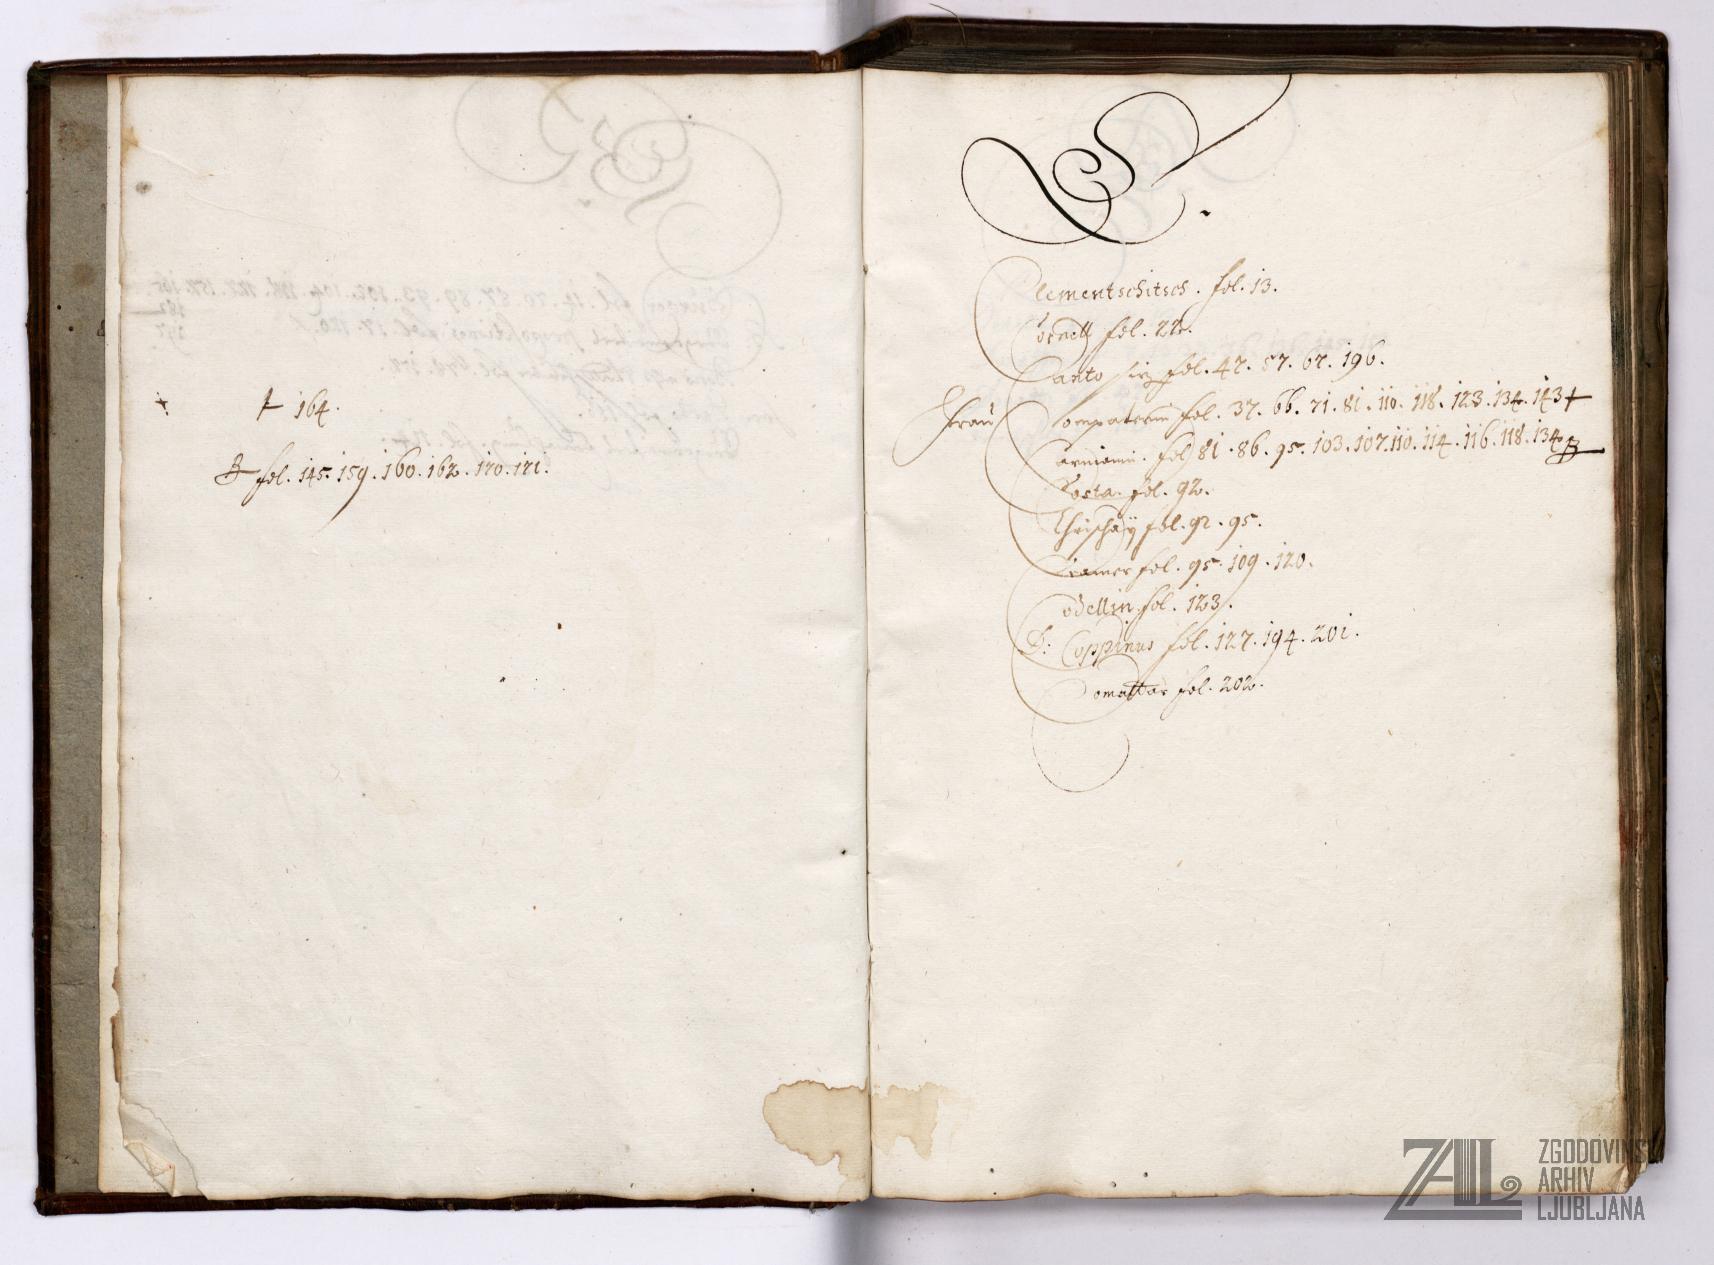 + 164.
B fol. 145. 159. 160. 162. 170. 171.
C.
Clementschitsch. fol. 13.
Coraell fol. 22.
Canto fol. 47. 57. 67. 196.
Frau Compaterin fol. 37. 66. 71. 81. 110. 118. 123. 134. 143 +
Carminin. fol 81. 86. 95. 103. 107. 110. 114. 116. 118. 134 B
Costa. fol. 92.
fol. 92. 95.
Cramer fol. 95. 109. 120.
Codellin. fol. 123.
D: Coppinus fol. 127. 194. 201.
Comattar fol. 202.
ZAL ZGODOVINSKI
ARHIV
LJUBLJANA